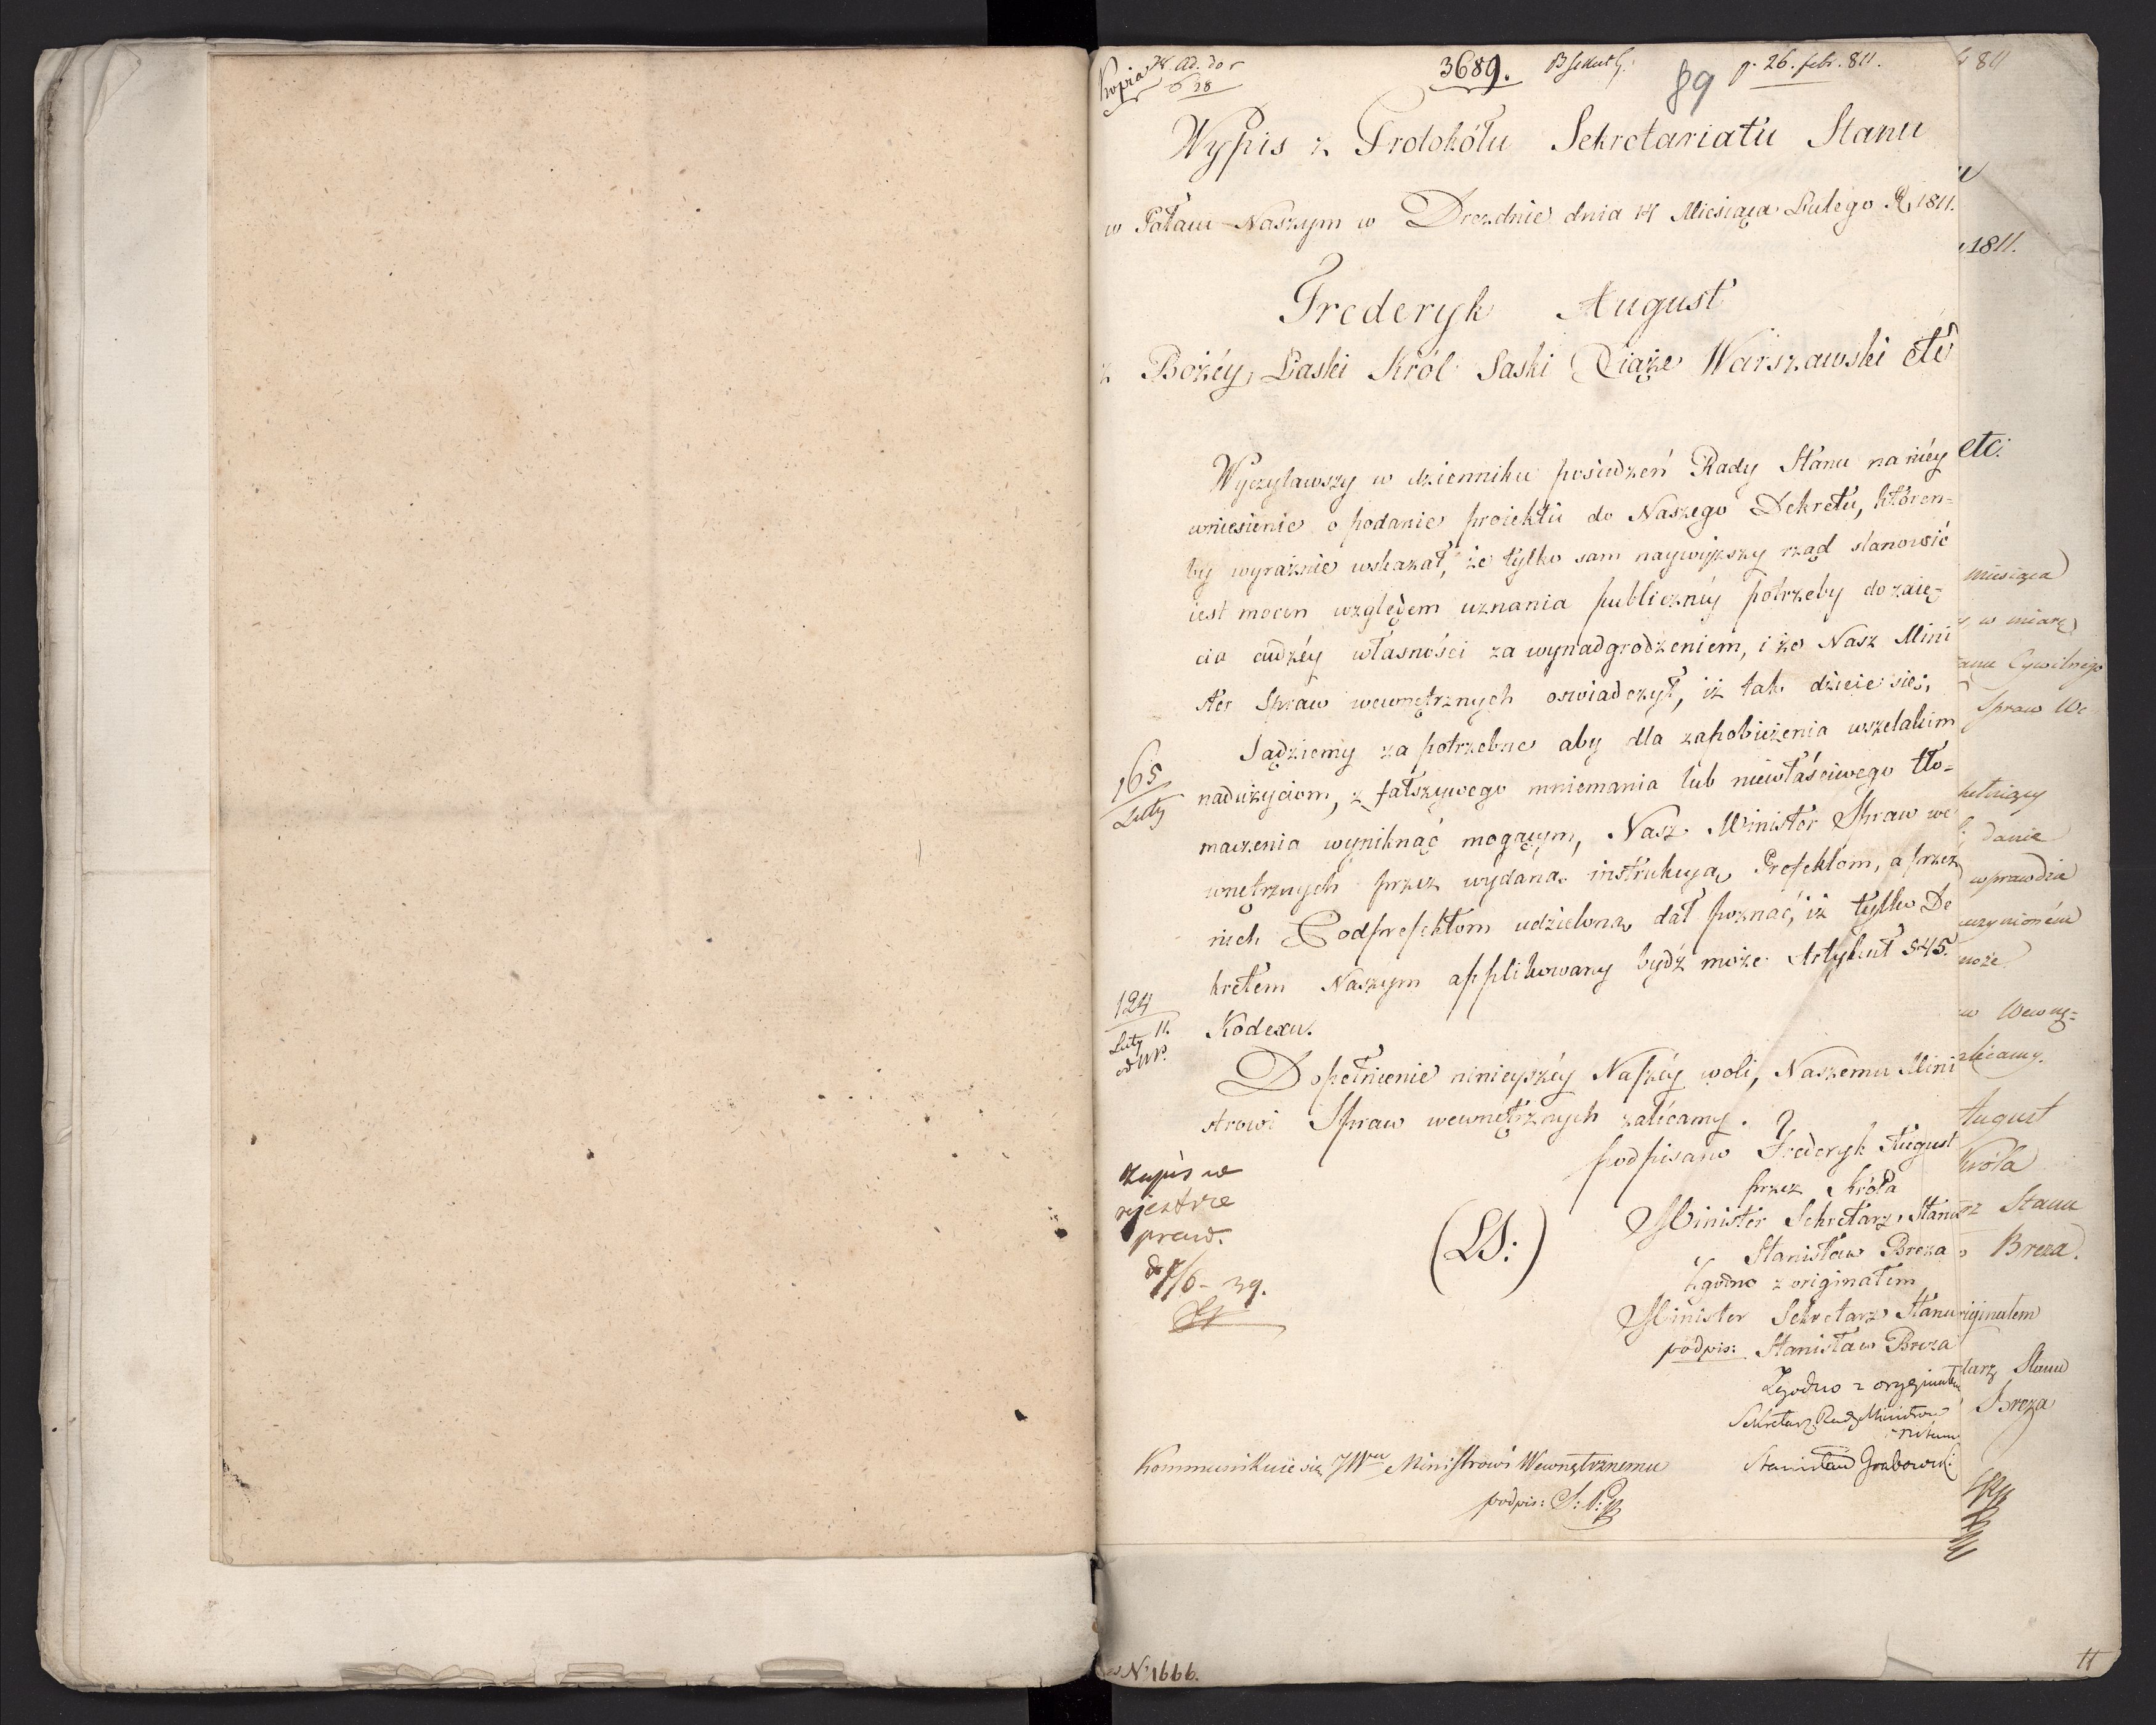 Kopia
3689.
89
26. febr. 811.
Wypis z Protokółu Sekretariatu Stanu
w Pałacu Naszym w Dreznie dnia 14 Miesiąca Lutego R. 1811.
Frederyk August
z Bożéy Łaski Król Saski Xiąże Warszawski etc
Wyczytawszy w dzienniku posiedzeń Rady Stanu na niéy
wniesienie o podanie proiektu do Naszego Dekretu, któren-
by wyraźnie wskazał, że tylko sam naywyższy rząd stanowić
iest mocen względem uznania publicznéy potrzeby do zaię-
cia cudzéy własności za wynadgrodzeniem, i że Nasz Mini
ster Spraw wewnętrznych oswiadczył, iż tak dzieie się;
Sądziemy za potrzebne aby dla zapobieżenia wszelakim
nadużyciom, z fałszywego mniemania lub niewłaściwego tło-
maczenia wyniknąć mogącym, Nasz Minister Spraw we
wnętrznych przez wydaną instrukcyą Prefektom, a przez
nich Podprefektom udzieloną dał poznać, iż tylko De
kretem Naszym applikowany bydź może Artykuł 545.
Kodexu.
Dopełnienie ninieyszéy Naszéy woli, Naszemu Mini
strowi Spraw wewnętrznych zalecamy.
podpisano Frederyk August
przez Króla
Minister Sekretarz Stanu
Stanisław Breza
(LS:)
Zgodno z originałem
Minister Sekretarz Stanu
podpis: Stanisław Breza
Zgodno z oryginałem
Sekretarz Rady Ministrów
Stanisław Grabowski
Kommunikuie się JWmu Ministrowi Wewnętrznemu
podpis: S: P:
165
Luty
124
Luty 11.
Zapis w
rejestrze
praw.
39.
No 1666.
811
1811.
etc:
miesiąca
w miarę
Cywilnego
Spraw We
danie
wprawdzie
może
Wewnę=
August
Króla
Stanu
Breza.
riginałem
tarz Stanu
Breza
11